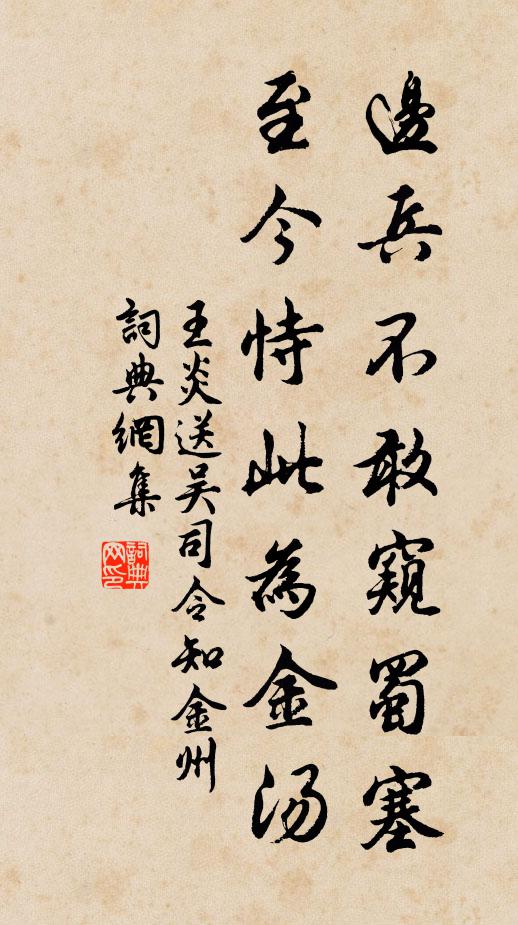 邊兵不敢窺蜀塞
至今恃此為金汤
王炎送吴司令知金州
詞典網集
詞典网印